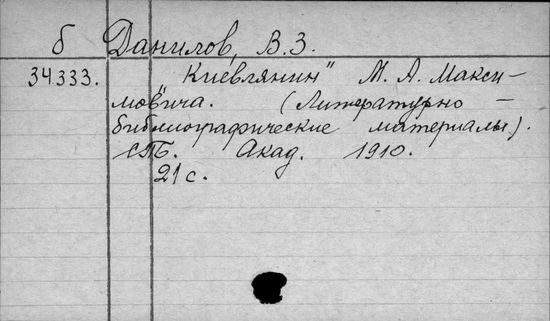 б Данилов, В.З.
34.333. "Киевлянин" М. А. Макси-
мовича. (Литературно-
библиографические материалы).
СПБ. Акад. 1910.
21 с.